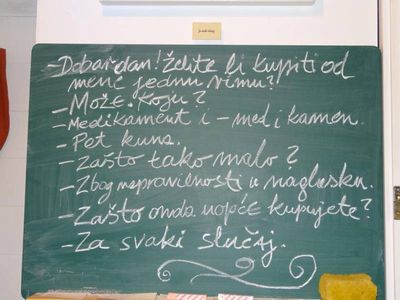 - Dobar dan! Želite li kupiti od
mene jednu rimu?
- Može. Koju?
- Medikament i - med i kamen.
- Pet kuna.
- Zašto tako malo?
- Zbog nepravilnosti u naglasku.
- Zašto onda uopće kupujete?
- Za svaki slučaj.